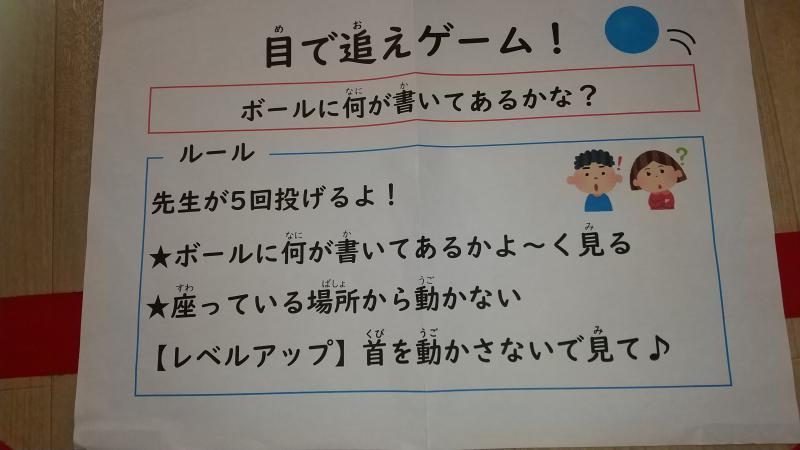 目で追えゲーム！
ボールに何が書いてあるかな？
ルール
先生が5回投げるよ！
★ボールに何が書いてあるかよ～く見る
★座っている場所から動かない
【レベルアップ】首を動かさないで見て♪